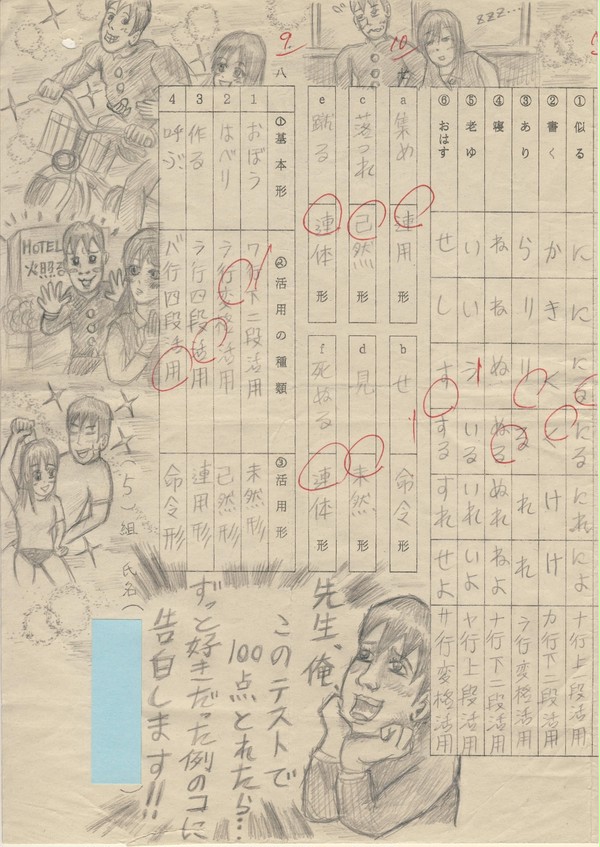 ① 似る に に にる にる にれ によ ナ行上一段活用
② 書く か き く く け け カ行下二段活用
③ あり ら り り る れ れ ラ行変格活用
④ 寝 ね ね ぬ ぬる ぬれ ねよ ナ行下二段活用
⑤ 老ゆ い い いる いれ いよ ヤ行上段活用
⑥ おはす せ し す する すれ せよ サ行変格活用
10
zzz…
a 集め 連用 形
b せ 命令 形
c 落つれ 已然 形
d 見 未然 形
e 蹴る 連体 形
f 死ぬる 連体 形
9
八
①基本形 ②活用の種類 ③活用形
1 おぼう ワ行下二段活用 未然形
2 はべり ラ行変格活用 已然形
3 作る ラ行四段活用 連用形
4 呼ぶ バ行四段活用 命令形
HOTEL
火照
(5)組 氏名( )
先生、俺、
このテストで
100点とれたら…
ずっと好きだった例のコに
告白します!!